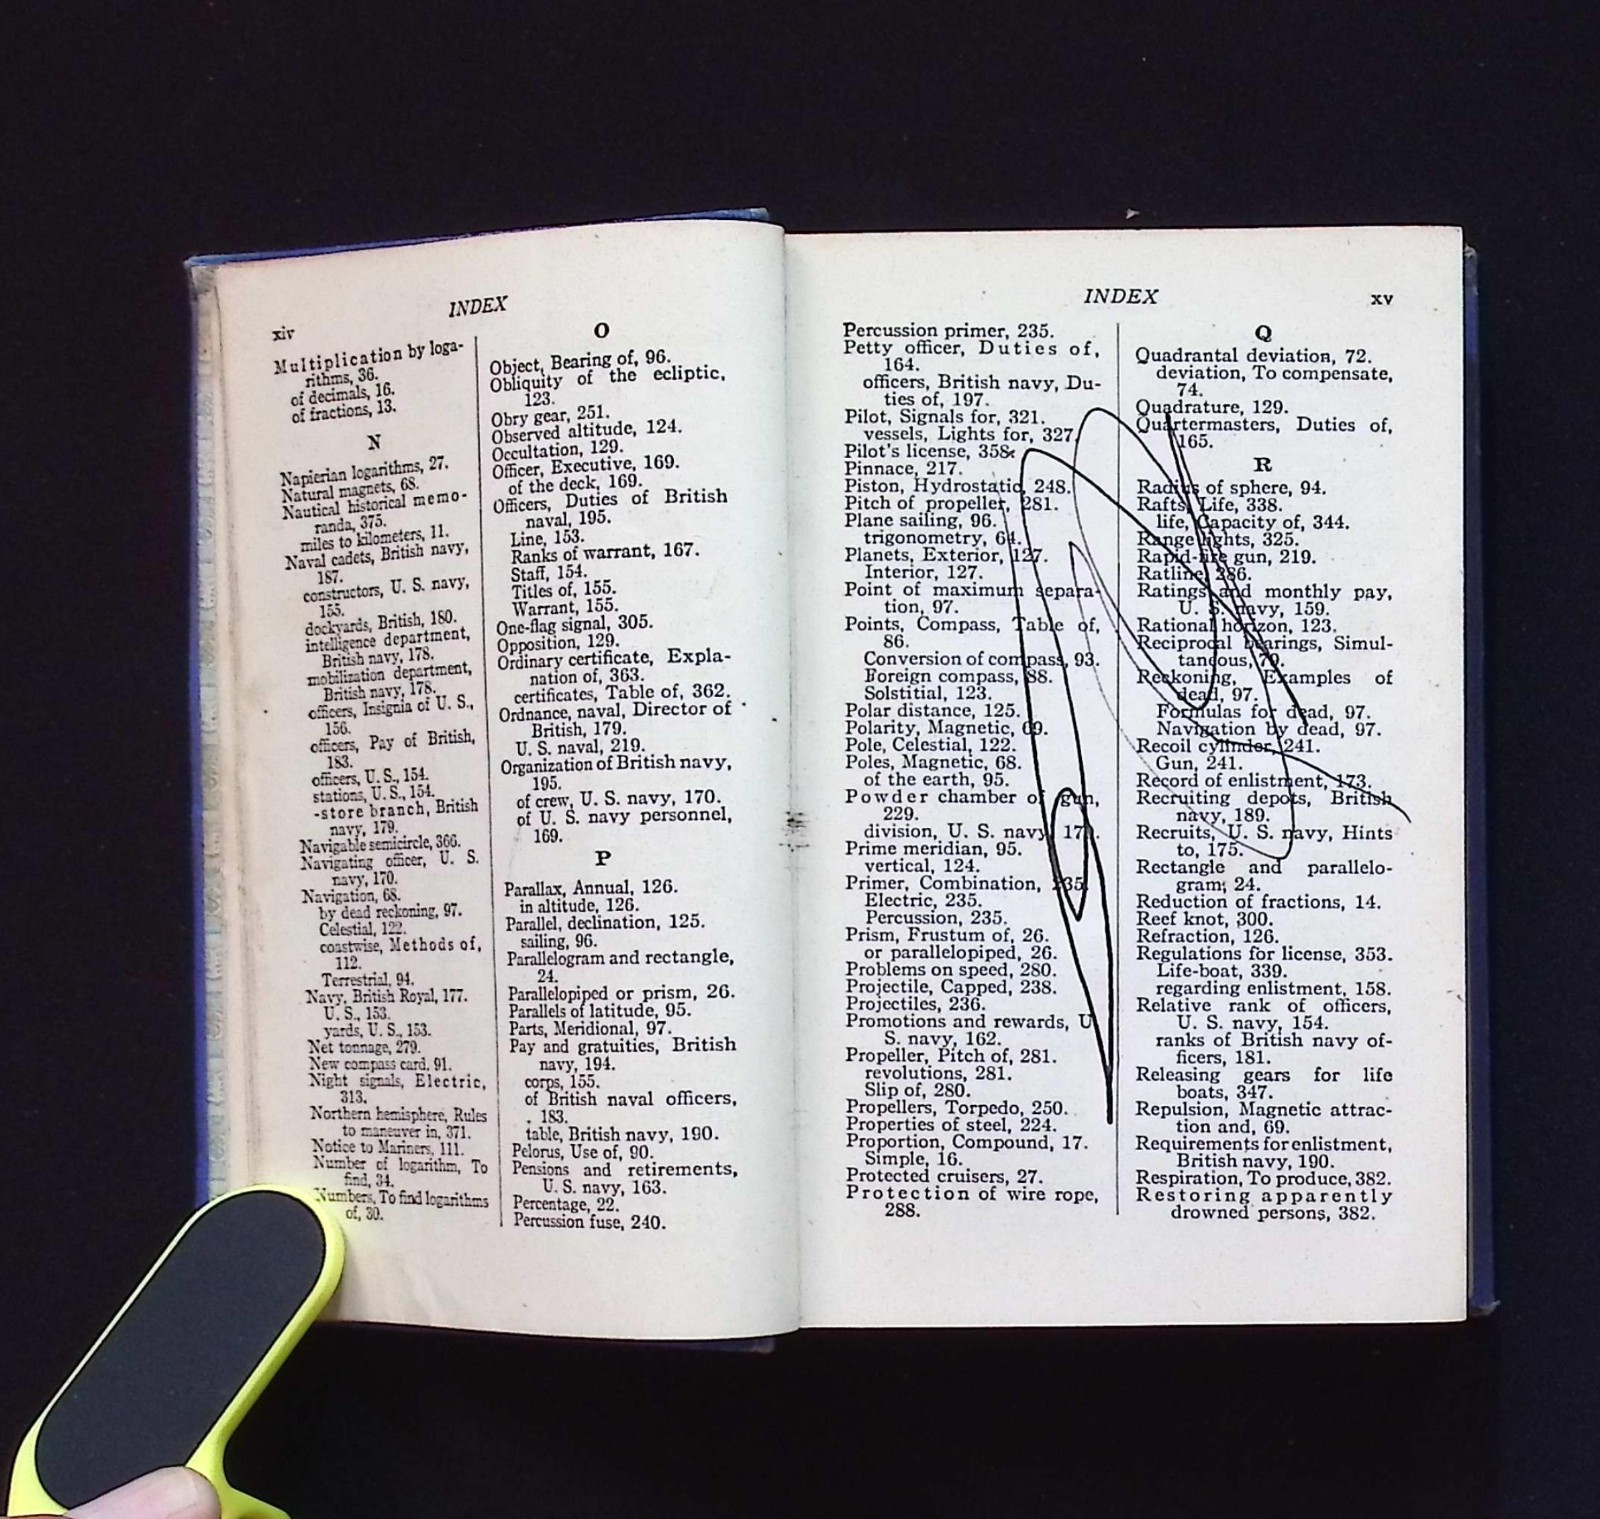 xiv
INDEX
Multiplication by loga-
rithms, 36.
of decimals, 16.
of fractions, 13.
N
Napierian logarithms, 27.
Natural magnets, 68.
Nautical historical memo-
randa, 375.
miles to kilometers, 11.
Naval cadets, British navy,
187.
constructors, U. S. navy,
155.
dockyards, British, 180.
intelligence department,
British navy, 178.
mobilization department,
British navy, 178.
officers, Insignia of U. S.,
156.
officers, Pay of British,
183.
officers, U. S., 154.
stations, U. S., 154.
-store branch, British
navy, 179.
Navigable semicircle, 366.
Navigating officer, U. S.
navy, 170.
Navigation, 68.
by dead reckoning, 97.
Celestial, 122.
coastwise, Methods of,
112.
Terrestrial, 94.
Navy, British Royal, 177.
U. S., 153.
yards, U. S., 153.
Net tonnage, 279.
New compass card, 91.
Night signals, Electric,
313.
Northern hemisphere, Rules
to maneuver in, 371.
Notice to Mariners, 111.
Number of logarithm, To
find, 34.
Numbers, To find logarithms
of, 30.
O
Object, Bearing of, 96.
Obliquity of the ecliptic,
123.
Obry gear, 251.
Observed altitude, 124.
Occultation, 129.
Officer, Executive, 169.
of the deck, 169.
Officers, Duties of British
naval, 195.
Line, 153.
Ranks of warrant, 167.
Staff, 154.
Titles of, 155.
Warrant, 155.
One-flag signal, 305.
Opposition, 129.
Ordinary certificate, Expla-
nation of, 363.
certificates, Table of, 362.
Ordnance, naval, Director of
British, 179.
U. S. naval, 219.
Organization of British navy,
195.
of crew, U. S. navy, 170.
of U. S. navy personnel,
169.
P
Parallax, Annual, 126.
in altitude, 126.
Parallel, declination, 125.
sailing, 96.
Parallelogram and rectangle,
24.
Parallelopiped or prism, 26.
Parallels of latitude, 95.
Parts, Meridional, 97.
Pay and gratuities, British
navy, 194.
corps, 155.
of British naval officers,
183.
table, British navy, 190.
Pelorus, Use of, 90.
Pensions and retirements,
U. S. navy, 163.
Percentage, 22.
Percussion fuse, 240.
INDEX
xv
Percussion primer, 235.
Petty officer, Duties of,
164.
officers, British navy, Du-
ties of, 197.
Pilot, Signals for, 321.
vessels, Lights for, 327.
Pilot's license, 358.
Pinnace, 217.
Piston, Hydrostatic, 248.
Pitch of propeller, 281.
Plane sailing, 96.
trigonometry, 64.
Planets, Exterior, 127.
Interior, 127.
Point of maximum separa-
tion, 97.
Points, Compass, Table of,
86.
Conversion of compass, 93.
Foreign compass, 88.
Solstitial, 123.
Polar distance, 125.
Polarity, Magnetic, 69.
Pole, Celestial, 122.
Poles, Magnetic, 68.
of the earth, 95.
Powder chamber of gun,
229.
division, U. S. navy,
Prime meridian, 95.
vertical, 124.
Primer, Combination, 235.
Electric, 235.
Percussion, 235.
Prism, Frustum of, 26.
or parallelopiped, 26.
Problems on speed, 280.
Projectile, Capped, 238.
Projectiles, 236.
Promotions and rewards, U.
S. navy, 162.
Propeller, Pitch of, 281.
revolutions, 281.
Slip of, 280.
Propellers, Torpedo, 250.
Properties of steel, 224.
Proportion, Compound, 17.
Simple, 16.
Protected cruisers, 27.
Protection of wire rope,
288.
Q
Quadrantal deviation, 72.
deviation, To compensate,
74.
Quadrature, 129.
Quartermasters, Duties of,
165.
R
Radius of sphere, 94.
Rafts, Life, 338.
life, Capacity of, 344.
Range lights, 325.
Rapid-fire gun, 219.
Ratline, 286.
Ratings and monthly pay,
U. S. navy, 159.
Rational horizon, 123.
Reciprocal bearings, Simul-
taneous, 79.
Reckoning, Examples of
dead, 97.
Formulas for dead, 97.
Navigation by dead, 97.
Recoil cylinder, 241.
Gun, 241.
Record of enlistment, 173.
Recruiting depots, British
navy, 189.
Recruits, U. S. navy, Hints
to, 175.
Rectangle and parallelo-
gram, 24.
Reduction of fractions, 14.
Reef knot, 300.
Refraction, 126.
Regulations for license, 353.
Life-boat, 339.
regarding enlistment, 158.
Relative rank of officers,
U. S. navy, 154.
ranks of British navy of-
ficers, 181.
Releasing gears for life
boats, 347.
Repulsion, Magnetic attrac-
tion and, 69.
Requirements for enlistment,
British navy, 190.
Respiration, To produce, 382.
Restoring apparently
drowned persons, 382.